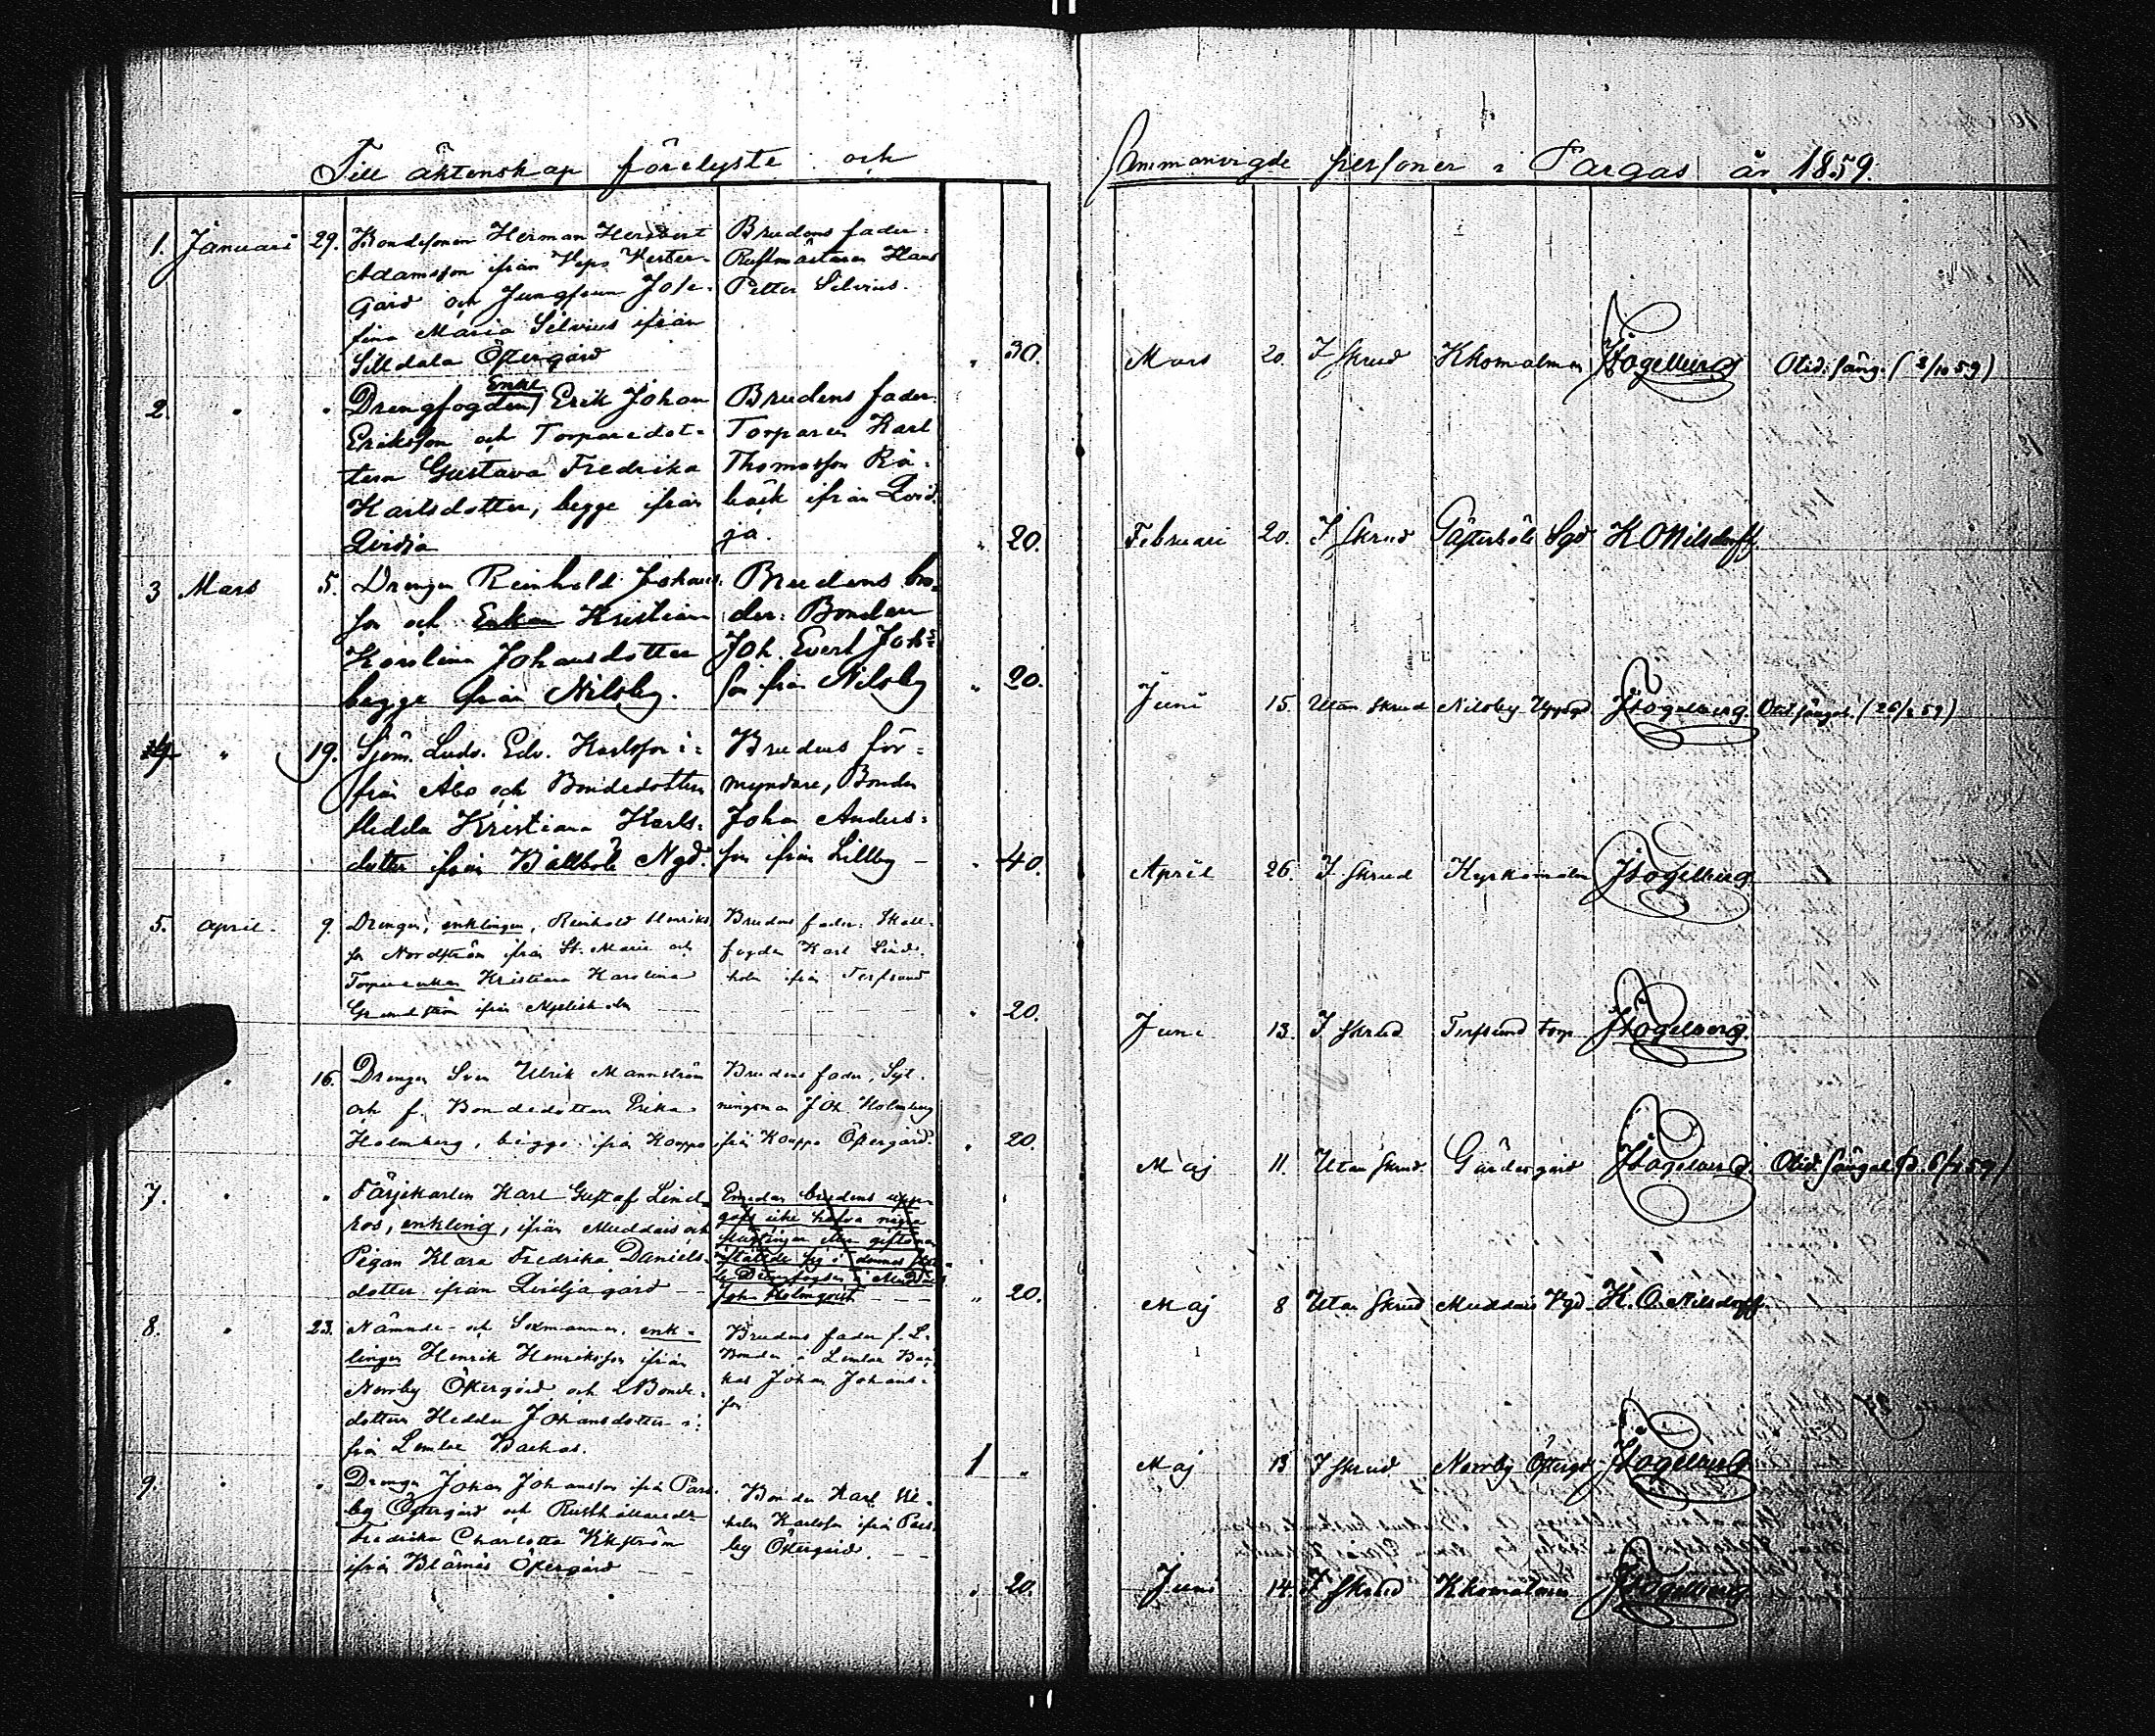 Till äktenskap förelyste och
Sammanvigde personer i Pargas år 1859.
1. Januari 29. Bondesonen Herman Heribert
Adamsson ifrån Vepo Vester-
gård och Jungfrun Jose-
fina Maria Silvius ifrån
Silldala Östergård
Brudens fader:
Rustmästaren Hans
Petter Silvius.
" 30.
Mars 20. I skrud Khomalmen JHögelberg Otid. säng. (2/10 59)
2. " " Drengfogden Enkl Erik Johan
Eriksson och Torparedot-
tern Gustava Fredrika
Karlsdotter, begge ifrån
Qvidja
Brudens fader:
Torparen Karl
Thomasson Rå-
bäck ifrån Qvid-
ja.
" 20.
Februari 20. I skrud Sgd K O Nilsdorff.
3 Mars 5. Drengen Reinhold Johans-
son och Enkan Kristian
Karolina Johansdotter
begge från Nilsby.
Brudens bro-
der: Bonden
Joh. Evert Johs-
son från Nilsby
" 20.
Juni 15. Utan skrud Nilsby Uppgd. JHögelberg. Otid. sängel. (26/2 59)
4. " 19. Sjöm. Ludv. Edv. Karlsson i-
från Åbo och Bondedottern
Hedda Kristiana Karls-
dotter ifrån Bällböle Ngd.
Brudens för-
myndare, Bonden
Johan Anders-
son ifrån Lillby
" 40.
April 26. I skrud Kyrkomalm JHögelberg
5. April. 9. Drengen, enklingen, Reinhold Henriks-
son Nordström ifrån St. Marie och
Torpareenkan Kristiana Karolina
Grundström ifrån Mjelisholm
Brudens fader: Skall-
fogden Karl Lind-
holm ifrån Terfsund
" 20.
Juni 13. I skrud Terfsund torp JHögelberg.
" 16. Drengen Sven Ulrik Mannström
och f. Bondedottern Erika
Holmberg, begge ifrån Koupo
Brudens fader, Syt-
ningsman Joh Holmberg
ifrån Koupo Östergård.
" 20.
Maj 11. Utan skrud. Gundergård JHögelberg. Otid. sängel.
7. " " Färjkarlen Karl Gustaf Lind-
ros, enkling, ifrån Muddais och
Pigan Klara Fredrika Daniels-
dotter ifrån Qvidja gård
Emedan brudens upp-
gafs icke hafva några
slägtingar eller giftoman
inställde sig i dennes stäl-
le Drengfogden i Muddais
Joh Holmqvist
" 20.
Maj 8 Utan skrud Muddais Vgd. K. O. Nilsdorff.
8. " 23. Nämnde- och Sexmannen, enk-
lingen Henrik Henriksson ifrån
Norrby Östergård och Bonde-
dottern Hedda Johansdotter i-
från Lemlax Backas.
Brudens fader f. L.
Bonden å Lemlax Bac-
kas Johan Johans-
son
1 "
Maj 13 I skrud Norrby Östergd JHögelberg
9. " " Drengen Johan Johansson ifrån Pars-
by Östergård och Rusthållaredr
Fredrika Charlotta Vikström
ifrån Blåsnäs Östergård
Bonden Karl Vil-
helm Karlsson ifrån Pars-
by Östergård.
" 20.
Juni 14. I skrud Khomalmen JHögelberg